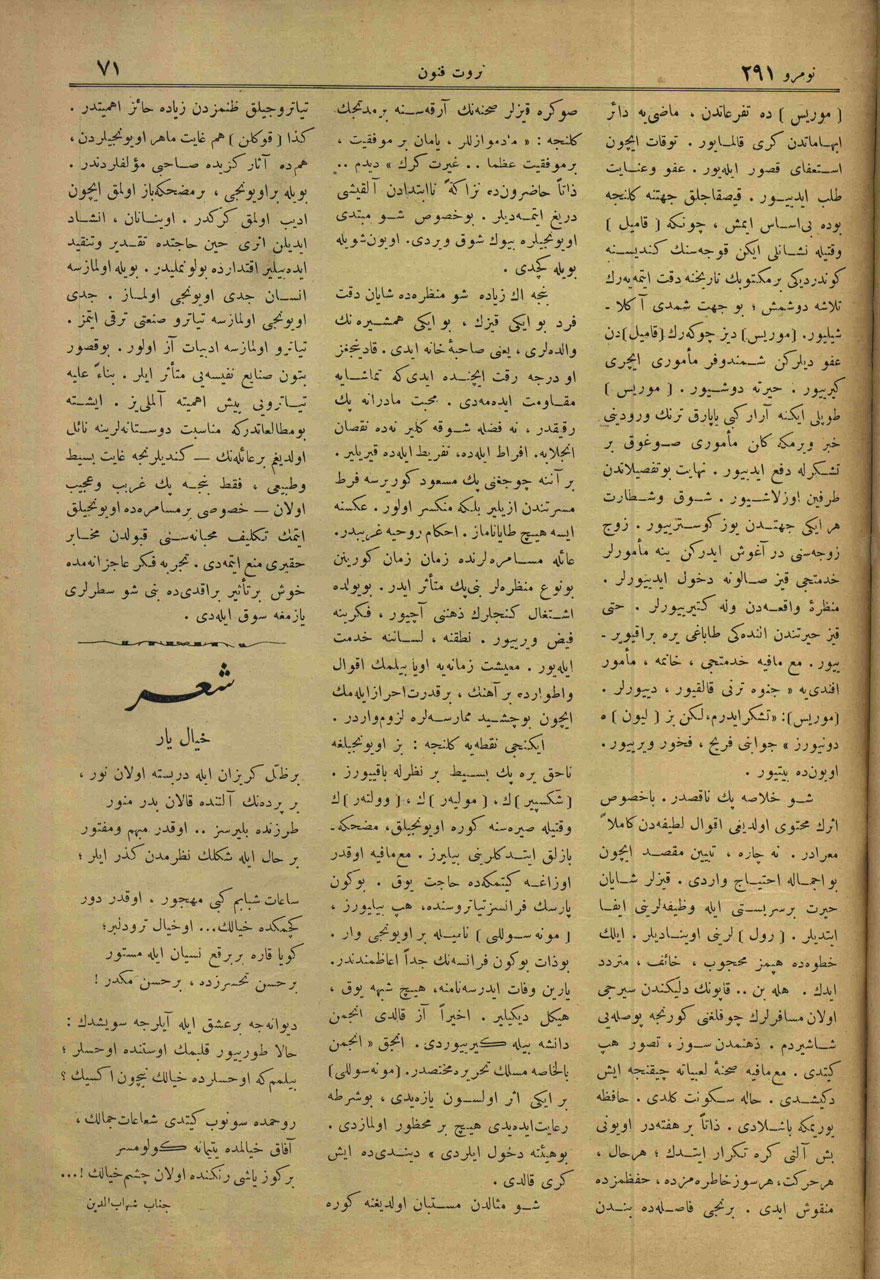 نومرو ٢٩١
ثروت فنون
٧١
[ موريس ] ده تفرعاتدن ، ماضى‌يه دائر
ايهاماتدن كرى قالمايور . توقات ايچون
استعفاى قصور ايله‌يور . عفو وعنايت
طلب ايديیور . قيصقاجلق جهتنه كلنجه
بوده بى‌اساس ايمش ، چونكه [ قاميل ]
وقتيله نشانلى ايكن قوجه‌سنك كنديسنه
كوندرديكى برمكتوبك تاريخنه دقت ايتميه‌رك
تلاشه دوشمش ؛ بو جهت شمدى آ كلا ـ
شيليور. [موريس] ديز چوكه‌رك [قاميل]دن
عفو ديلركن شمندوفر مأمورى ايچرى
كيريیور . حيرته دوشيور . [ موريس ]
طوپلى ايكنه آرار كبى ياپارق ترنك ورودينى
خبر ويرمكه كلن مأمورى صوغوق بر
تشكرله دفع ايديیور . نهايت بوتفصيلاندن
طرفين اوزلاشيور . شوق وشطارت
هر ايكى جهتدن يوز كوستريیور . زوج
زوجه‌سنى در آغوش ايدركن ينه مأمورلر
خدمتجى قيز صالونه دخول ايديیورلر .
منظرۀ واقعه‌دن وله كتيريیورلر . حتى
قيز حيرتندن النده‌كى طاباغى يره براقيوير ـ
يیور . مع مافيه خدمتجى ، خانمه ، مأمور
افنديه « جنوه ترنى قالقيور ، ديیورلر .
[موريس]: «تشكر ايدرم، لكن بز [ ليون ] ه
دونيورز » جوابنى فرنج ، فخور ويريیور .
اويون‌ده بيتيور .
شو خلاصه پك ناقصدر . باخصوص
اثرك محتوى اولديغى اقوال لطيفه‌دن كاملاً
معرادر . نه چاره ، تبيين مقصد ايچون
بو اجماله احتياج واردى . قيزلر شايان
حيرت برسربستى ايله وظيفه‌لرينى ايفا
ايتديلر . [ رول ] لرينى اوينادیلر . ايلك
خطوه‌ده هپمز محجوب ، خائف ، متردد
ايدك . هله بن .. قاپونك دليكندن سيرجى
اولان مسافرلرك چوقلغنى كورنجه پوصله‌يى
شاشيردم . ذهنمدن سوز ، تصور هپ
كيتدى . مع مافيه صحنۀ لعبيانه چيقنجه ايش
دكيشدى . حاله سكونت كلدى . حافظه
يوريمكه باشلادى . ذاتاً برهفته‌در اويونى
بش آلتى كره تكرار ايتدك ؛ هرحال ،
هرحركت، هرسوز خاطره‌مزده ، حفظمزده
منقوش ايدى . برنجى فاصله‌ده بندن
صوكره قيزلر صحنه‌نك آرقه‌سنه برمدتجك
كلنجه : « مادموازللر ، يامان بر موفقيت ،
برموفقيت عظما .. غيرت كرك » ديدم ..
ذاتاً حاضرون‌ده نزاكةً تاابتدادن آلقيشى
دريغ ايتمه‌ديلر . بوخصوص شو مبتدى
اويونجيلره بيوك شوق ويردى . اويون‌شويله
بويله كچدى .
بنجه اك زياده شو منظره‌ده شايان دقت
فرد بو ايكى قيزك ، بو ايكى همشيره‌نك
والده‌لرى ، يعنى صاحبۀ خانه ايدى. قادينجغز
او درجه رقت ايچنده ايدى‌كه تماشايه
مقاومت ايده‌مه‌دى . محبت مادرانه پك
رقيقدر ، نه فضله شوقه كلير نه‌ده نقصان
انجلابه. افراط ايله‌ده، تفريط ايله‌ده قيريلير .
بر آننه چوجغنى پك مسعود كوررسه فرط
مسرتندن ازيلير بلكه منكسر اولور . عكسنه
ايسه هيچ طاياناماز. احكام روحيه غريبدر.
عائله مسامره‌لرنده زمان زمان كورينن
بونوع منظره‌لر بنى پك متأثر ايدر . بويولده
اشتغال كنجلرك ذهننى آچيور ، فكرينه
فيض ويريیور . نطقنه ، لساننه خدمت
ايله‌يور . معيشت زمانه‌يه اويا بيلمك اقوال
واطوارده بر آهنك ، برقدرت احراز ايله‌مك
ايچون بوچشيد ممارسه‌لره لزوم‌واردر .
ايكنجى نقطه‌يه كلنجه : بز اويونجيلغه
ناحق يره پك بسيط بر نظرله باقيیورز .
[شكسپير] ك، [موليه‌ر] ك ، [وولته‌ر] ك
وقتيله صيره‌سنه كوره اويونجيلق، مضحكه‌ـ
بازلق ايتدكلرينى بيليرز . مع مافيه اوقدر
اوزاغه كيتمكده حاجت يوق . بوكون
پارسك فرانسز تياتروسنده، هپ بيليورز ،
[ مونه سوللى ] ناميله بر اويونجى وار .
بوذات بوكون فرانسه‌نك جداً اعاظمندندر.
يارين وفات ايدرسه‌نامنه، هيچ شبهه يوق ،
هيكل ديكيلير . اخيراً آز قالدى انجمن
دانشه بيله كيريیوردى. انجق « انجمن
بالخاصه مسلك تحريره مختصدر. [مونه‌سوللى]
بر ايكى اثر اولسون يازه‌يدى ، بوشرطه
رعايت ايده‌يدى هيچ بر محظور اولمازدى .
بوهيئته دخول ايلردى » دينديى‌ده ايش
كرى قالدى .
شو مثالدن مستبان اولديغنه كوره
تياتروجيلق ظنمزدن زياده حائز اهميتدر .
كذا [ قوكلان ] هم غايت ماهر اويونجيلردن،
هم‌ده آثار كزيده صاحبى مؤلفلردندر .
بويله بر اويونجى ، برمضحكه‌باز اولمق ايچون
اديب اولمق كركدر . اوينانان ، انشاد
ايديلن اثرى حين حاجتده تقدير وتنقيد
ايده‌بيلير اقتدارده بولونمليدر . بويله اولمازسه
انسان جدى اويونجى اولماز . جدى
اويونجى اولمازسه تياترو صنعتى ترقى ايتمز .
تياترو اولمازسه ادبيات آز اولور . بوقصور
بتون صنايع نفيسه‌يى متأثر ايلر . بناءً عليه
تياترويى پيش اهميته آلمليز . ايشته
بومطالعاتدركه مناسبت دوستانه‌لرينه نائل
اولديغم برعائله‌نك — كنديلرنجه غايت بسيط
وطبيعى ، فقط بنجه پك غريب وعجيب
اولان — خصوصى برمسامره‌ده اويونجيلق
ايتمك تكليف محبانه‌سنى قبولدن مخابر
حقيرى منع ايتمه‌دى . تجربه فكر عاجزانه‌مده
خوش برتأثير براقدى‌ده بنى شو سطرلرى
يازمغه سوق ايله‌دى .
شعر
خيال يار
برظلّ كريزان ايله دربسته اولان نور ،
بر پرده‌نك آلتنده قالان بدر منور
طرزنده بليرسز .. اوقدر مبهم ومفتور
بر حال ايله شكلك نظرمدن كذر ايلر ؛
ساعات شبابم كبى مهجور ، اوقدر دور
كچمكده خيالك... اوخيال ترودلبر؛
كويا قاره بربرقع نسيان ايله مستور
برحسن تحسرزده ، برحسن مكدر !
ديوانه‌جه برعشق ايله آيلرجه سويشدك :
حالا طوريیور قلبمك اوستنده اوحسلر ؛
بيلمم‌كه اوحسلرده خيالك نيچون اكسيك ؟
روحمده سونوب كيتدى شعاعات‌جمالك ،
آفاق خيالمده يتيمانه كولومسر
بركوز ياشى رنكنده اولان چشم خيالك !...
جناب شهاب‌الدين